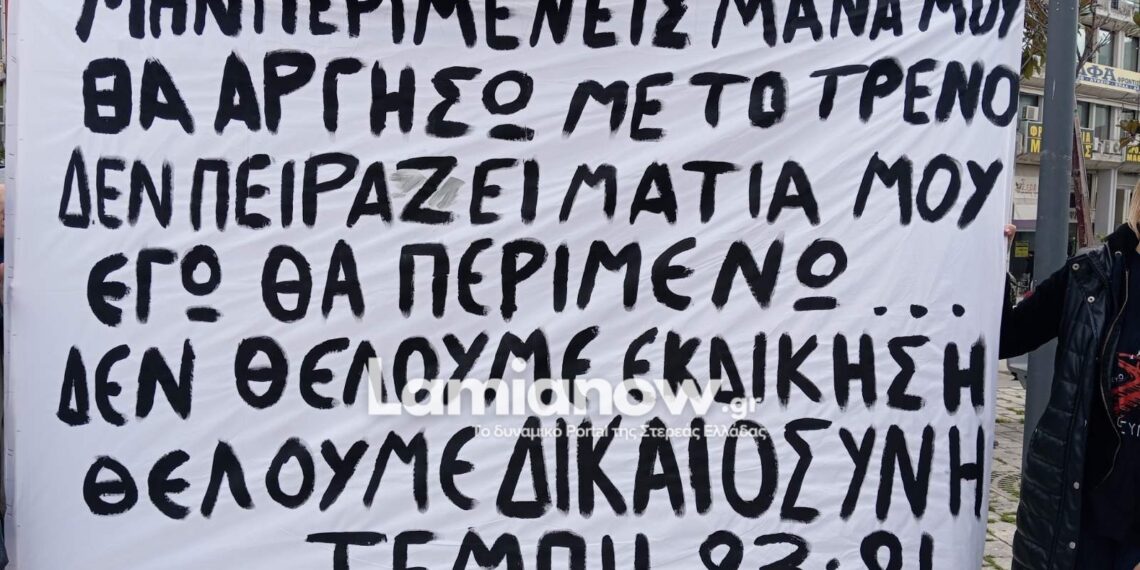 ΜΗΝ ΠΕΡΙΜΕΝΕΙΣ ΜΑΝΑ ΜΟΥ
ΘΑ ΑΡΓΗΣΩ ΜΕ ΤΟ ΤΡΕΝΟ
ΔΕΝ ΠΕΙΡΑΖΕΙ ΜΑΤΙΑ ΜΟΥ
ΕΓΩ ΘΑ ΠΕΡΙΜΕΝΩ ...
ΔΕΝ ΘΕΛΟΥΜΕ ΕΚΔΙΚΗΣΗ
ΘΕΛΟΥΜΕ ΔΙΚΑΙΟΣΥΝΗ
ΤΕΜΠΗ 23:21
Lamianow.gr
Το δυναμικό Portal της Στερεάς Ελλάδας